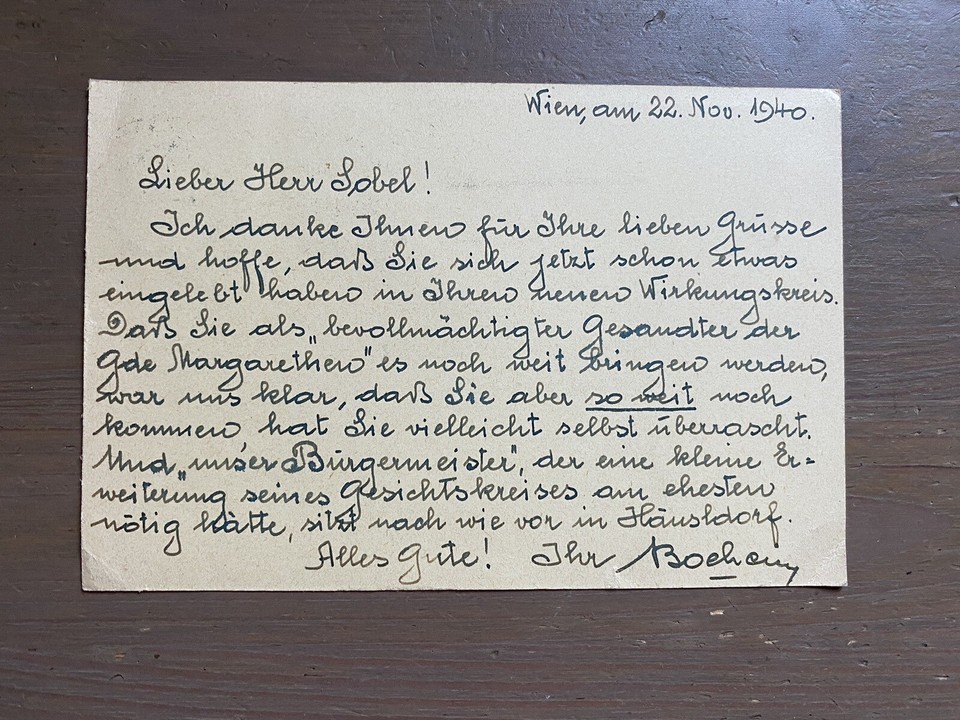 Wien, am 22. Nov. 1940.
Lieber Herr Sobel!
Ich danke Ihnen für Ihre lieben Grüsse
und hoffe, daß Sie sich jetzt schon etwas
eingelebt haben in Ihren neuen Wirkungskreis.
Daß Sie als „bevollmächtigter Gesandter der
Gde Margarethen" es noch weit bringen werden,
war uns klar, daß Sie aber so weit noch
kommen, hat Sie vielleicht selbst überrascht.
Und „unser Bürgermeister", der eine kleine Er=
weiterung seines Gesichtskreises am ehesten
nötig hätte, sitzt nach wie vor in Häusldorf.
Alles Gute! Ihr